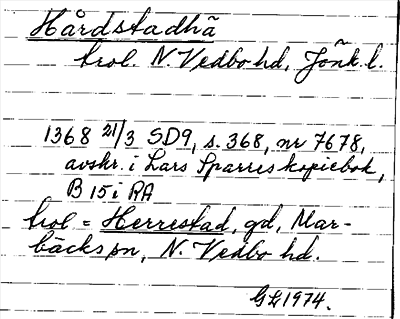 Hårdstadhã
trol. N. Vedbo hd, Jönk. l.
1368 21/3 SD9, s. 368, nr 7678,
avskr. i Lars Sparres kopiebok,
B 15 i RA
trol = Herrestad, gd, Mar-
bäcks sn, N. Vedbo hd.
GL 1974.